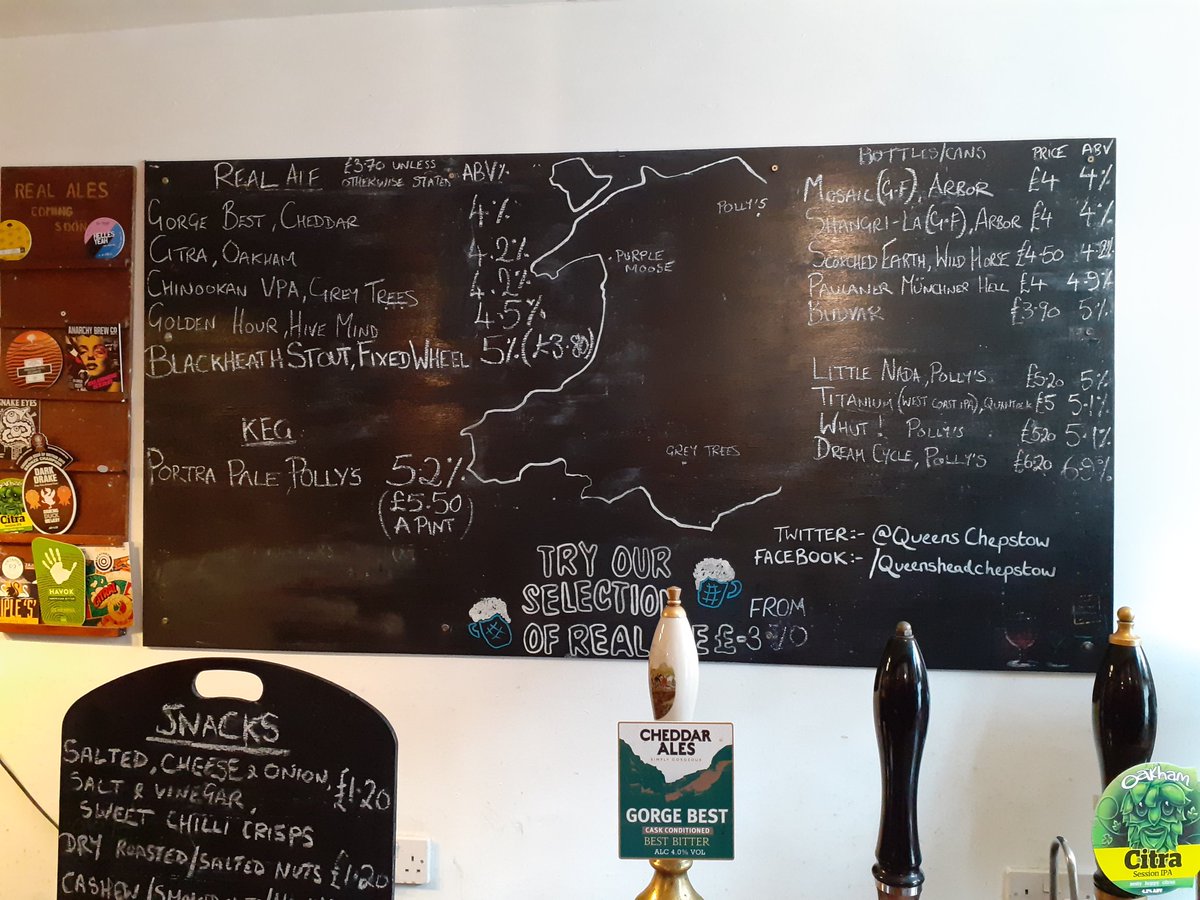 REAL ALES
COMING SOON
HELLES YEAH
ANARCHY BREW CO
SNAKE EYES
DARK DRAKE
Citra
HAVOK
REAL ALE £3.70 UNLESS OTHERWISE STATED ABV%
GORGE BEST, CHEDDAR 4%
CITRA, OAKHAM 4.2%
CHINOOKAN VPA, GREY TREES 4.2%
GOLDEN HOUR, HIVE MIND 4.5%
BLACKHEATH STOUT, FIXED WHEEL 5% (£3.80)
KEG
PORTRA PALE, POLLY'S 5.2%
(£5.50
A PINT)
POLLY'S
PURPLE
MOOSE
GREY TREES
BOTTLES/CANS PRICE ABV
MOSAIC (G.F), ARBOR £4 4%
SHANGRI-LA (G.F), ARBOR £4 4%
SCORCHED EARTH, WILD HORSE £4.50 4.2%
PAULANER MÜNCHNER HELL £4 4.9%
BUDVAR £3.90 5%
LITTLE NADA, POLLY'S £5.20 5%
TITANIUM (WEST COAST IPA), QUANTOCK £5 5.1%
WHUT! POLLY'S £5.20 5.1%
DREAM CYCLE, POLLY'S £6.20 6.9%
TWITTER:- @QUEENSCHEPSTOW
FACEBOOK:- /QUEENSHEADCHEPSTOW
TRY OUR
SELECTION
OF REAL
FROM
£-3.70
SNACKS
SALTED, CHEESE & ONION,
SALT & VINEGAR, £1.20
SWEET CHILLI CRISPS
DRY ROASTED/SALTED NUTS £1.20
CASHEW/
CHEDDAR
ALES
SIMPLY GORGEOUS
GORGE BEST
CASK CONDITIONED
BEST BITTER
ALC 4.0% VOL
Oakham
Citra
Session IPA
4.2% ABV